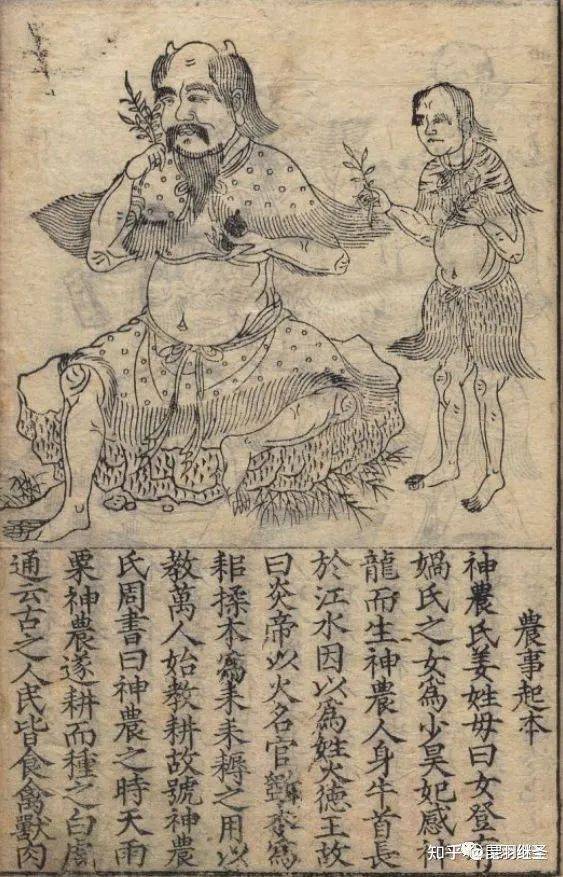 農事起本
神農氏姜姓母曰女登有
媧氏之女為少昊妃感神
龍而生神農人身牛首長
於江水因以為姓火德王故
曰炎帝以火名官木為
耜揉本為耒耒耨之用以
教萬人始教耕故號神農
氏周書曰神農之時天雨
粟神農遂耕而種之白虎
通云古之人民皆食禽獸肉
知乎 @昆羽继圣